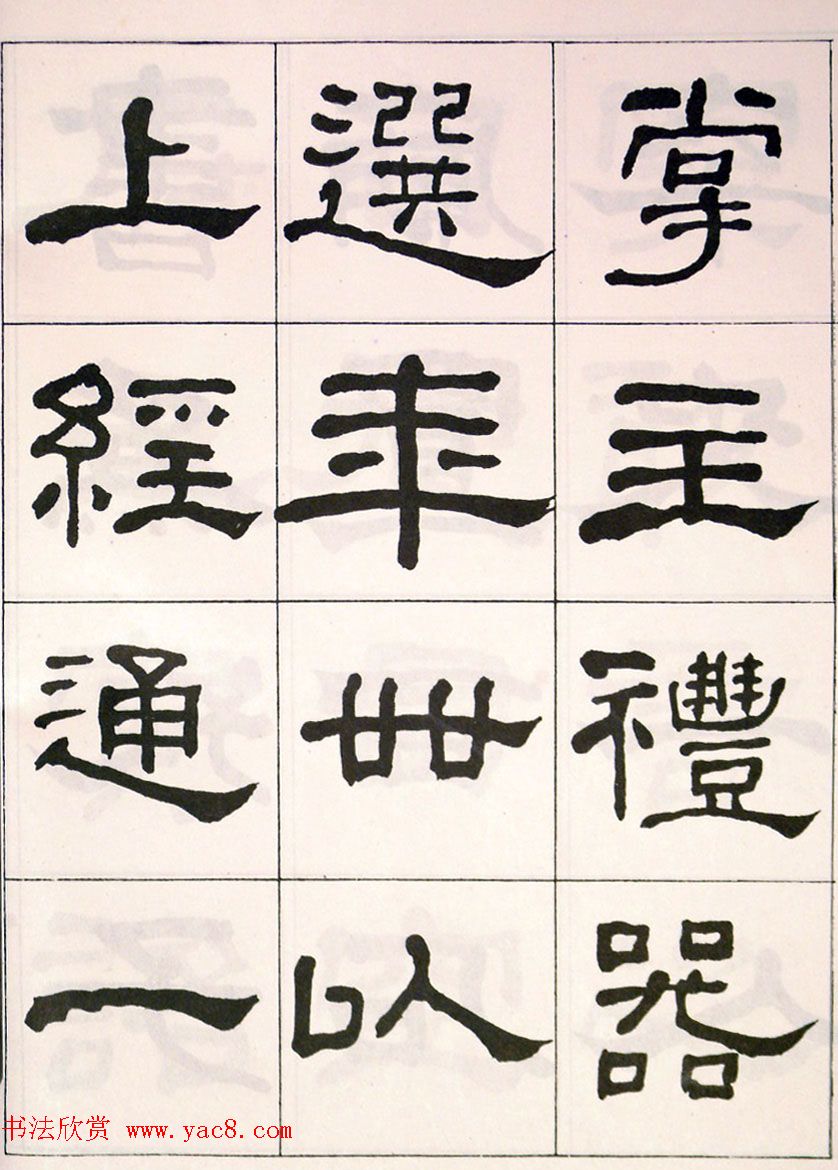 掌主禮器
選年卌以
上經通一
书法欣赏 www.yac8.com